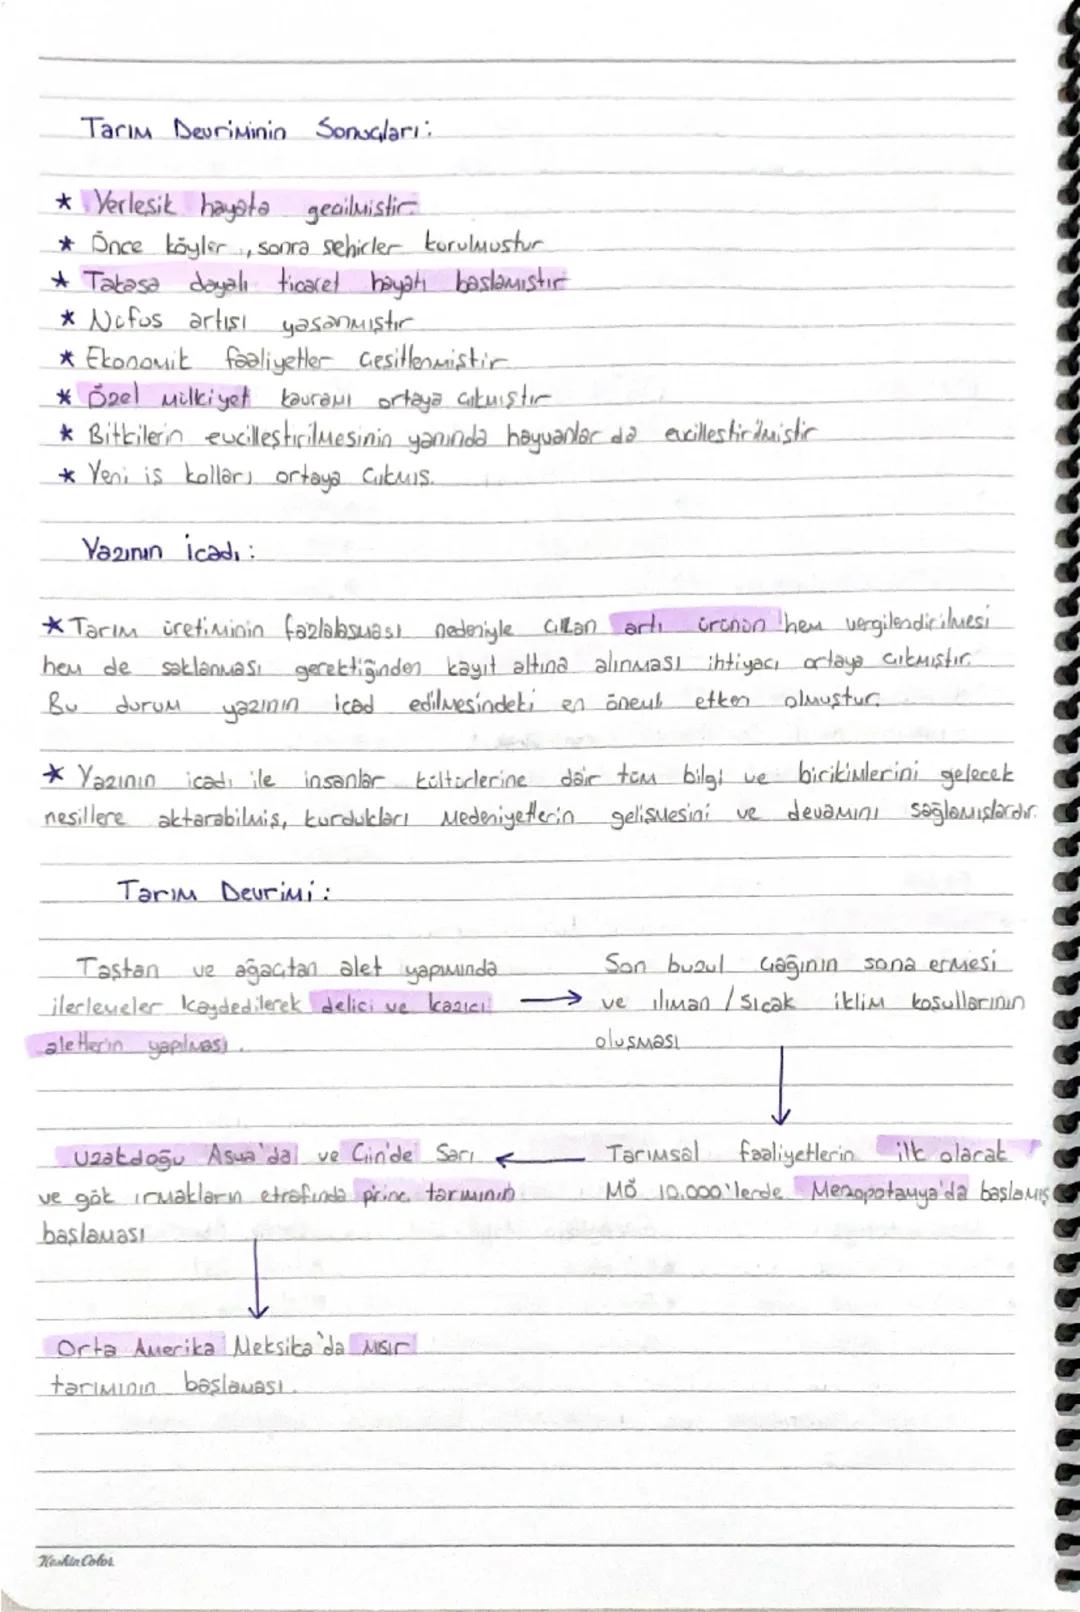 Tarım Devriminin Sonuçları:
* Yerleşik hayata geçilmiştir.
* Önce köyler, sonra şehirler kurulmuştur
* Takasa dayalı ticaret hayatı başlamıştır
* Nüfus artışı yaşanmıştır
* Ekonomik faaliyetler çeşitlenmiştir
* Özel mülkiyet kavramı ortaya çıkmıştır
* Bitkilerin evcilleştirilmesinin yanında hayvanlar da evcilleştirilmiştir
* Yeni iş kolları ortaya çıkmış.
Yazının İcadı:
* Tarım üretiminin fazlalaşması nedeniyle çıkan artı ürünün hem vergilendirilmesi
hem de saklanması gerektiğinden kayıt altına alınması ihtiyacı ortaya çıkmıştır.
Bu durum yazının icad edilmesindeki en önemli etken olmuştur.
* Yazının icadı ile insanlar kültürlerine dair tüm bilgi ve birikimlerini gelecek
nesillere aktarabilmiş, kurdukları medeniyetlerin gelişmesini ve devamını sağlamışlardır.
Tarım Devrimi:
Taştan ve ağaçtan alet yapımında
ilerlemeler kaydedilerek delici ve kazıcı →
aletlerin yapılması.
Son buzul çağının sona ermesi
ve ılıman / sıcak iklim koşullarının
oluşması
↓
Tarımsal faaliyetlerin ilk olarak
MÖ 10.000'lerde Mezopotamya'da başlamış
←
Uzakdoğu Asya'da ve Çin'de Sarı
ve gök ırmakların etrafında pirinç tarımının
başlaması
↓
Orta Amerika Meksika'da mısır
tarımının başlaması.
Keskin Color